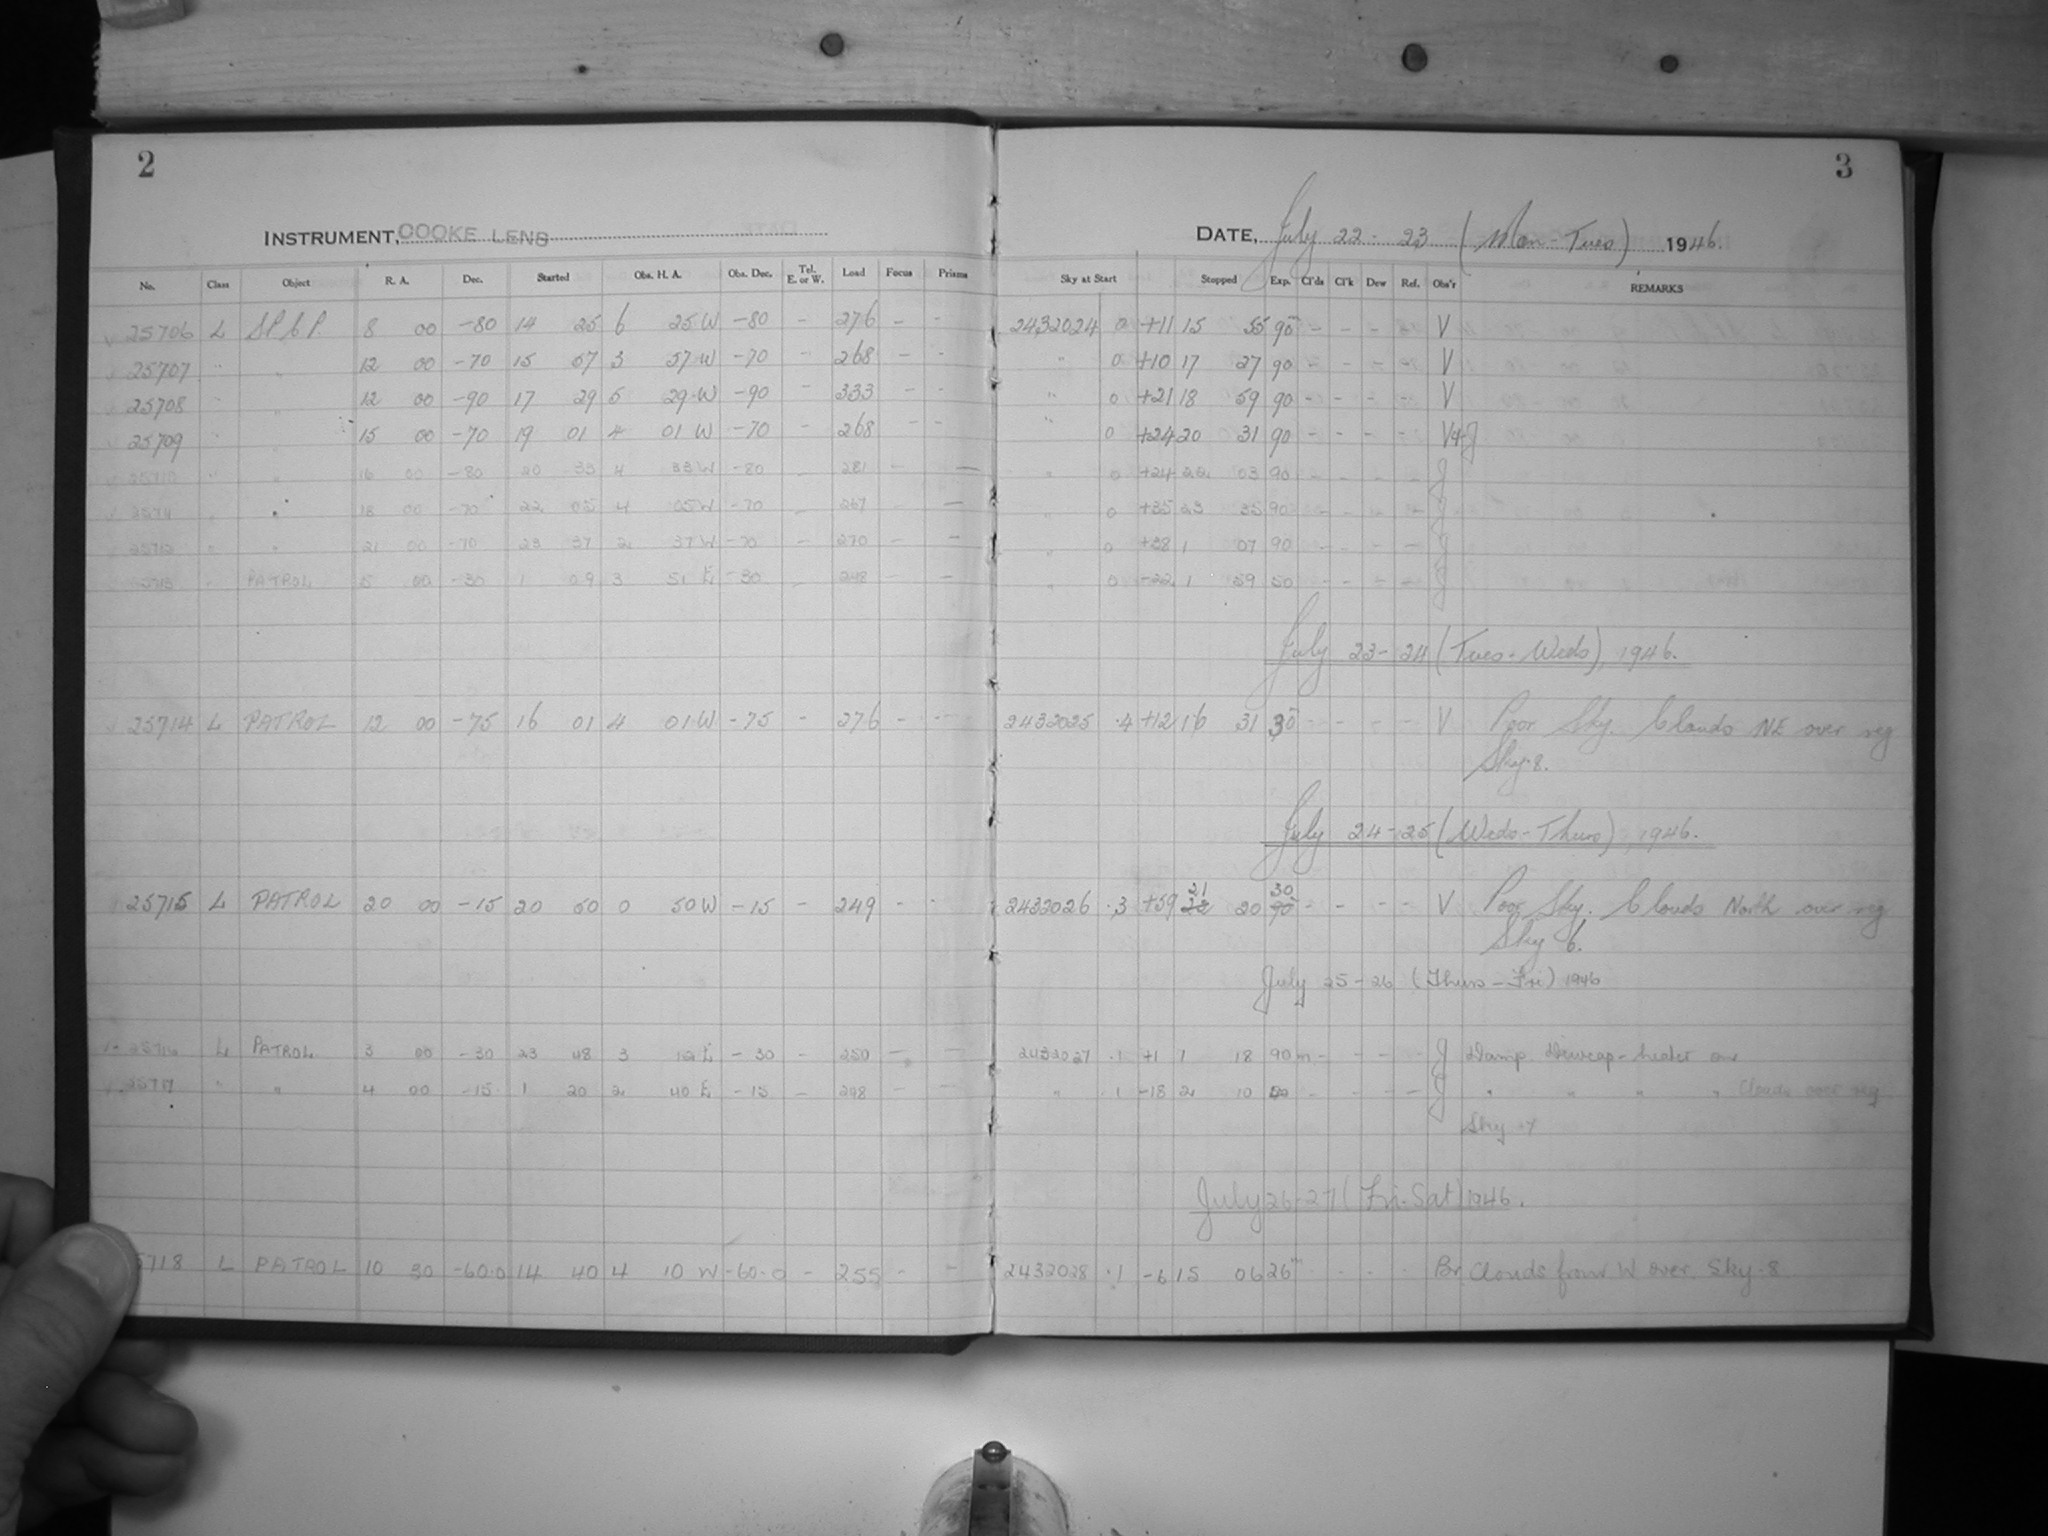 2
3
INSTRUMENT, COOKE LENS
DATE, July 22-23 (Mon-Tues) 1946.
No. Class Object R. A. Dec. Started Obs. H. A. Obs. Dec. Tel. E. or W. Load Focus Prisms Sky at Start Stopped Exp. Cl'ds Cl'k Dew Ref. Obs'r REMARKS
25706 L S.P.C.P. 8 00 -80 14 25 6 25 W -80 - 276 - - 2432024 0 +11 15 55 90 - - - V
25707 " " 12 00 -70 15 57 3 57 W -70 - 268 - - " 0 +10 17 27 90 - - - V
25708 " " 12 00 -90 17 29 5 29 W -90 - 333 - - " 0 +21 18 59 90 - - - V
25709 " " 15 00 -70 19 01 4 01 W -70 - 268 - - " 0 +24 20 31 90 - - - - V+J
25710 " " 16 00 -80 20 33 4 33 W -80 - 281 - - " 0 +24 22 03 90 - - - - J
25711 " " 18 00 -70 22 05 4 05 W -70 - 267 - - " 0 +35 23 35 90 - - - - J
25712 " " 21 00 -70 23 37 2 37 W -70 - 270 - - " 0 +38 1 07 90 - - - - J
25713 " PATROL 5 00 -30 1 09 3 51 E -30 - 248 - - " 0 -22 1 59 50 - - - - J
July 23-24 (Tues-Weds), 1946.
25714 L PATROL 12 00 -75 16 01 4 01 W -75 - 276 - - 2432025 .4 +12 16 31 30 - - - - V Poor Sky. Clouds NE over reg
Sky .8.
July 24-25 (Weds-Thurs), 1946.
25715 L PATROL 20 00 -15 20 50 0 50 W -15 - 249 - - 2432026 .3 +59 21 20 30 - - - - V Poor Sky. Clouds North over reg
Sky 6.
July 25-26 (Thurs-Fri) 1946
25716 L PATROL 3 00 -30 23 48 3 12 E -30 - 250 - - 2432027 .1 +1 1 18 90m - - - - J Damp Dewcap-heater on
25717 " " 4 00 -15 1 20 2 40 E -15 - 298 - - " .1 -18 2 10 50 - - - - J " " " " Clouds over reg
Sky .7
July 26-27 (Fri-Sat) 1946.
5718 L PATROL 10 30 -60.0 14 40 4 10 W -60.0 - 255 - - 2432028 .1 -6 15 06 26m - - - Br Clouds from W over. Sky .8